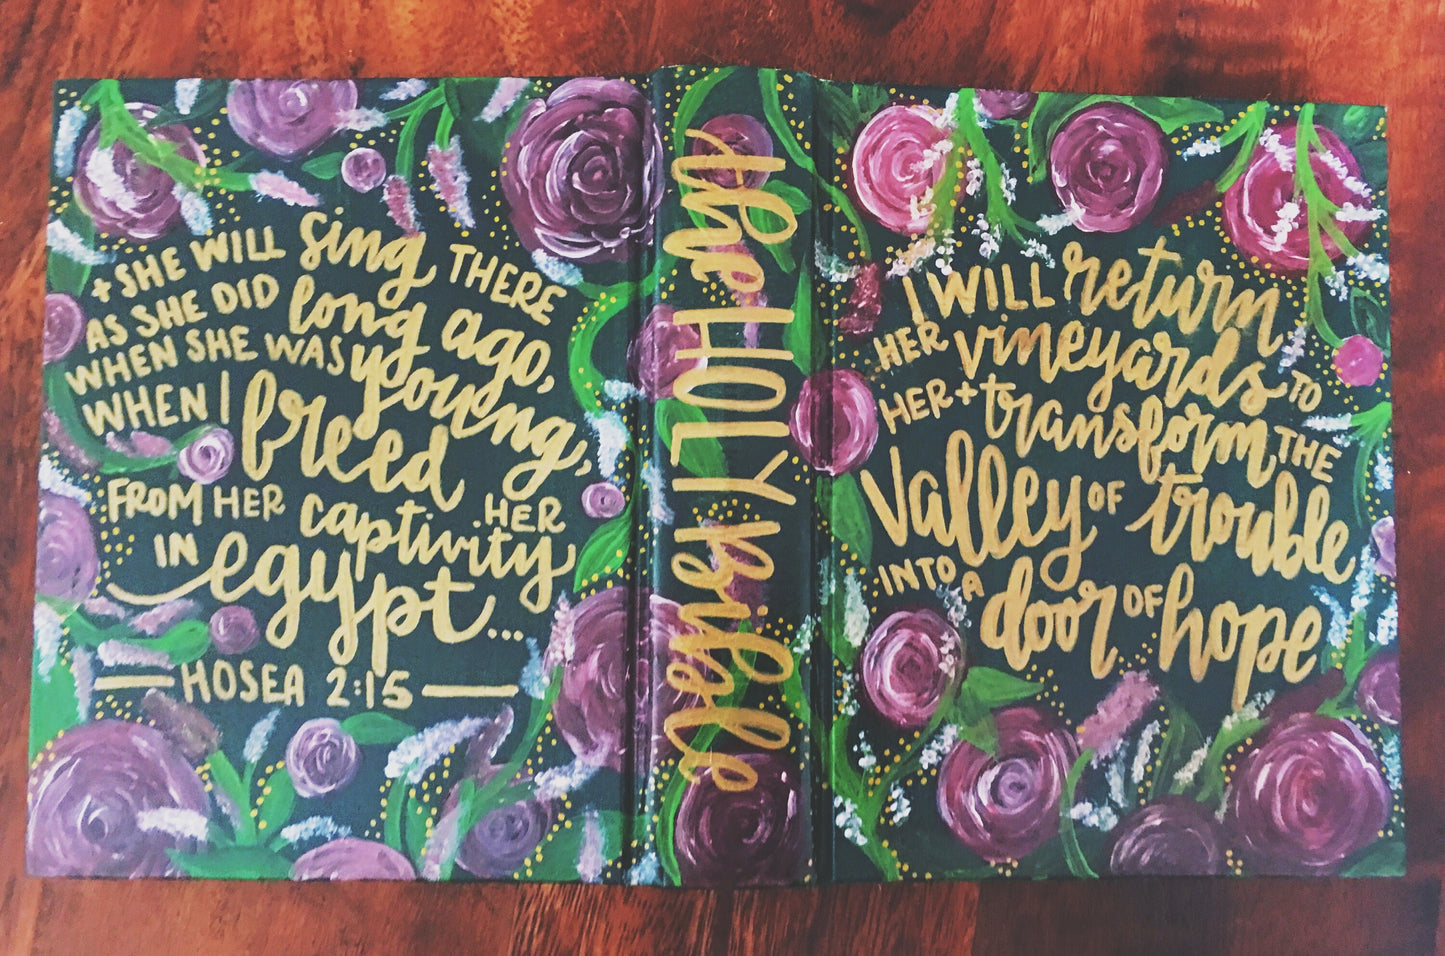 + SHE WILL sing THERE
AS SHE DID long ago,
WHEN SHE WAS young,
WHEN I freed HER
FROM HER captivity
IN egypt...
HOSEA 2:15
the HOLY Bible
I WILL return
HER vineyards TO
HER + transform THE
Valley OF trouble
INTO A door OF hope